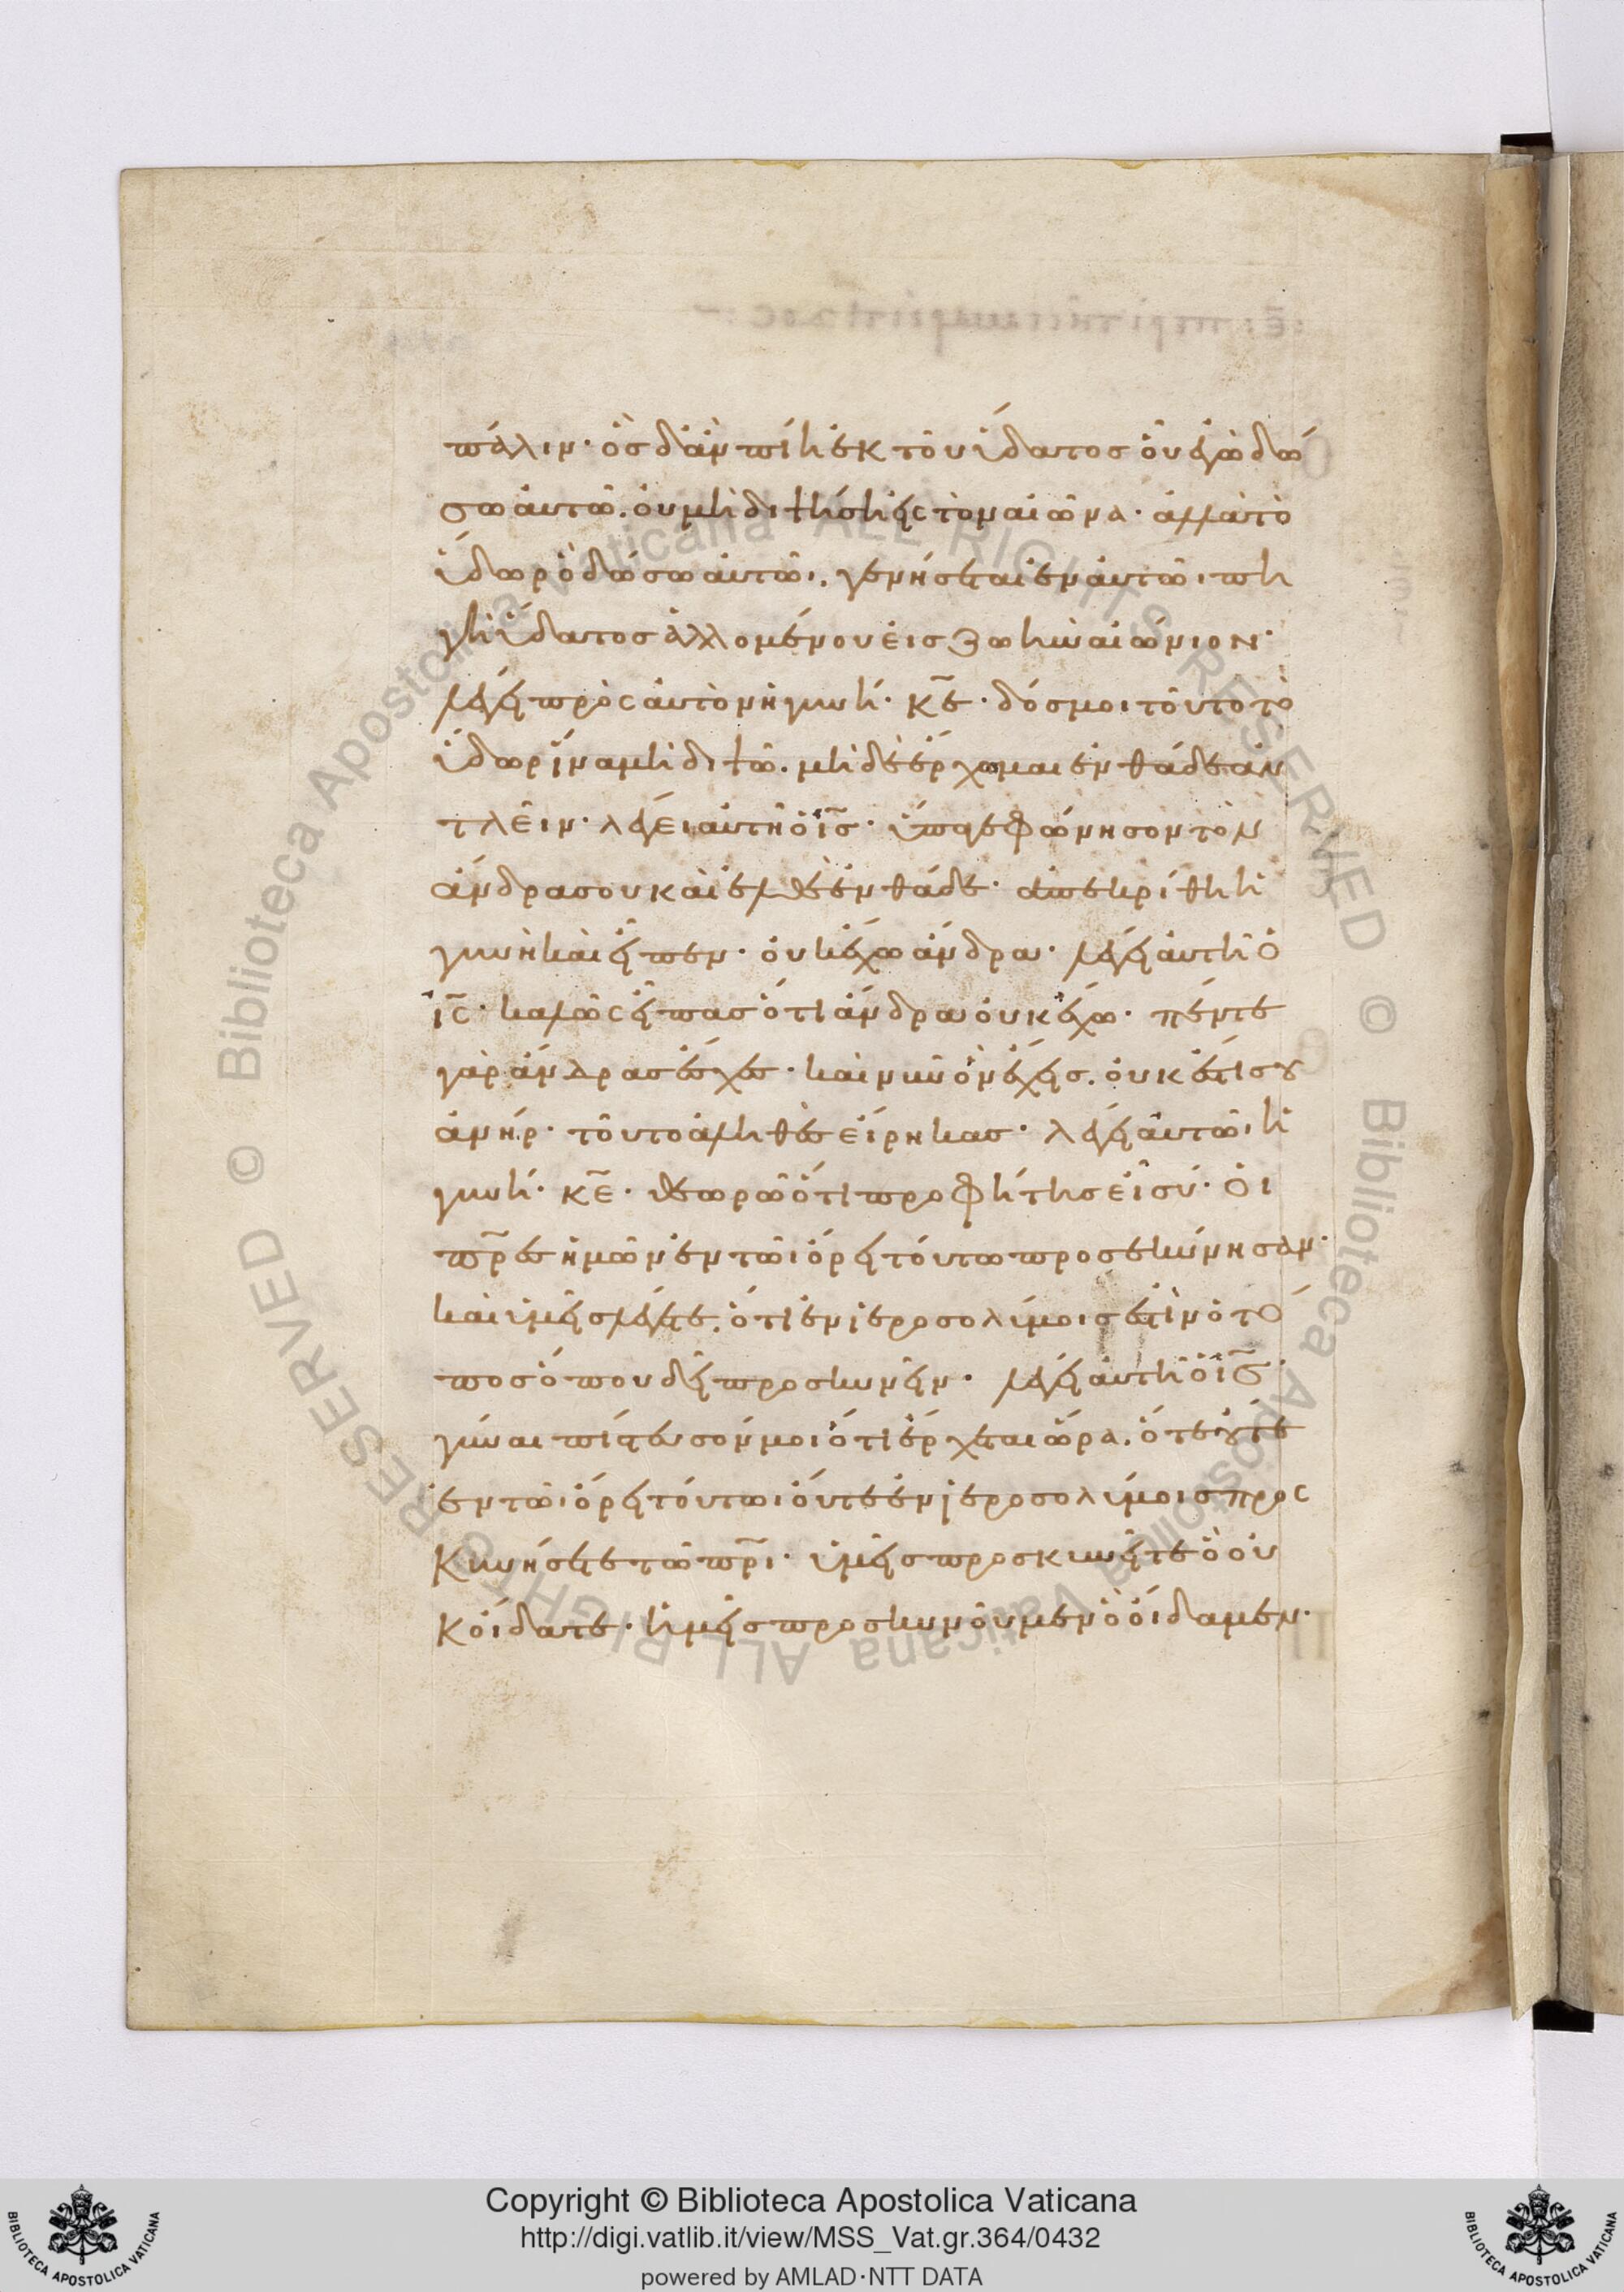 πάλιν· ὃς δ' ἂν πίη ἐκ τοῦ ὕδατος οὗ ἐγὼ δώ
σω αὐτῶ. οὐ μὴ διψήση εἰς τὸν αἰῶνα· ἀλλὰ τὸ
ὕδωρ ὃ δώσω αὐτῶι, γενήσεται ἐν αὐτῶι πη
γὴ ὕδατος ἁλλομένου εἰς ζωὴν αἰώνιον·
λέγει πρὸς αὐτὸν ἡ γυνή· κ̅ε̅· δός μοι τοῦτο τὸ
ὕδωρ ἵνα μὴ διψῶ. μὴ δὲ ἔρχομαι ἐνθάδε ἀν
τλεῖν· λέγει αὐτῆ ὁ ι̅ς̅· ὕπαγε φώνησον τὸν
ἄνδρα σου καὶ ἐλθὲ ἐνθάδε· ἀπεκρίθη ἡ
γυνὴ καὶ εἶπεν· οὐκ ἔχω ἄνδρα· λέγει αὐτῆ ὁ
ι̅ς̅· καλῶς εἶπας ὅτι ἄνδρα οὐκ ἔχω· πέντε
γὰρ ἄνδρας ἔσχες· καὶ νῦν ὃν ἔχεις. οὐκ ἔστι σου
ἀνήρ· τοῦτο ἀληθὲς εἴρηκας· λέγει αὐτῶι ἡ
γυνή· κ̅ε̅· θεωρῶ ὅτι προφήτης εἶ σύ· οἱ
π̅ρ̅ες ἡμῶν ἐν τῶι ὄρει τούτω προσεκύνησαν·
καὶ ὑμεῖς λέγετε. ὅτι ἐν ἱεροσολύμοις ἐστὶν ὁ τό
πος ὅπου δεῖ προσκυνεῖν· λέγει αὐτῆ ὁ ι̅ς̅·
γύναι πίστευσόν μοι ὅτι ἔρχεται ὥρα. ὅτε οὔτε
ἐν τῶι ὄρει τούτωι οὔτε ἐν ἱεροσολύμοις προς
κυνήσετε τῶ π̅ρ̅ι· ὑμεῖς προσκυνεῖτε ὃ οὐ
κ οἴδατε· ἡμεῖς προσκυνοῦμεν ὃ οἴδαμεν·
© Biblioteca Apostolica Vaticana ALL RIGHTS RESERVED
© Biblioteca Apostolica Vaticana ALL RIGHTS RESERVED
Copyright © Biblioteca Apostolica Vaticana
http://digi.vatlib.it/view/MSS_Vat.gr.364/0432
powered by AMLAD·NTT DATA
BIBLIOTECA APOSTOLICA VATICANA
BIBLIOTECA APOSTOLICA VATICANA